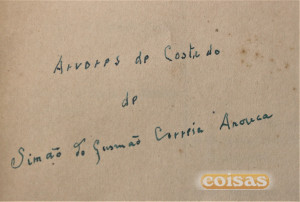 Arvores de Costado
de
Simão de Gusmão Correia Arouca
coisas